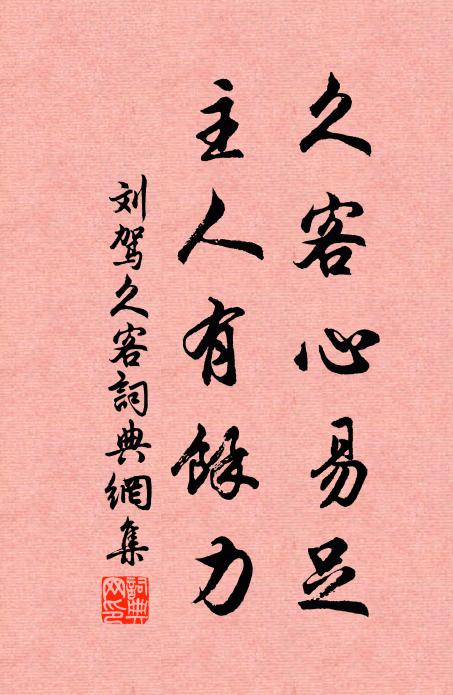 久客心易足
主人有餘力
刘驾久客詞典網集
詞典
网印